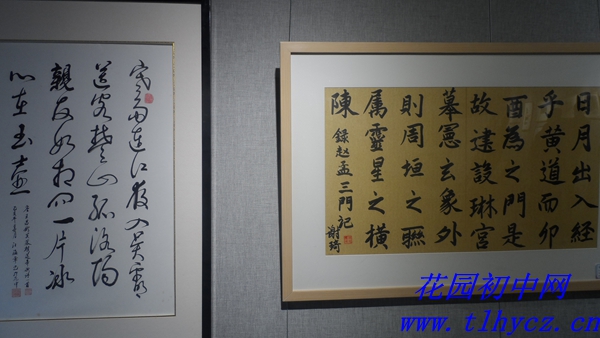 寒雨連江夜入吳平明
送客楚山孤洛陽
親友如相問一片冰
心在玉壺
日月出入經
乎黃道而卯
酉為之門是
故建設琳宮
摹憲玄象外
則周垣之聯
属靈星之横
陳
錄赵孟三門记
謝琦
花园初中网
www.tlhycz.cn